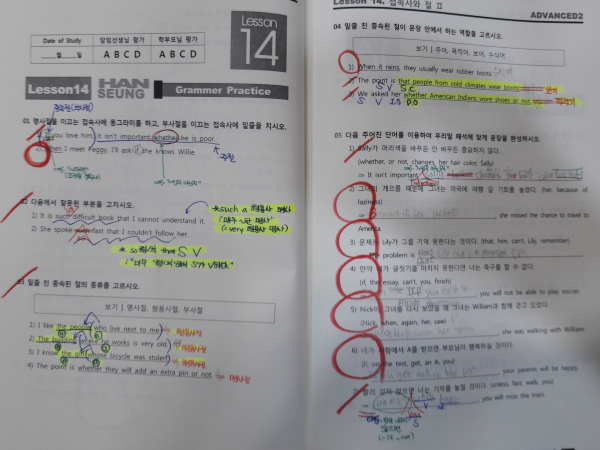 Lesson
14
Date of Study
담임선생님 평가
학부모님 평가
월 일
A B C D
A B C D
Lesson14
HAN SEUNG
Grammar Practice
01 명사절을 이끄는 접속사에 동그라미를 하고, 부사절을 이끄는 접속사에 밑줄을 치시오.
1) If you love him, it isn't important whether he is poor.
2) When I meet Peggy, I'll ask if she knows Willie.
02 다음에서 잘못된 부분을 고치시오.
1) It is such difficult book that I cannot understand it.
2) She spoke such fast that I couldn't follow her.
such a 형용사 명사
so 형/부 that S V
03 밑줄 친 종속된 절의 종류를 고르시오.
보기 | 명사절, 형용사절, 부사절
1) I like the people who live next to me.
2) The building where he works is very old.
3) I know the girl whose bicycle was stolen.
4) The point is whether they will add an extra pin or not.
Lesson 14. 접속사와 절 II
ADVANCED2
04 밑줄 친 종속된 절이 문장 안에서 하는 역할을 고르시오.
보기 | 주어, 목적어, 보어, 수식어
1) When it rains, they usually wear rubber boots.
2) The point is that people from cold climates wear boots.
S V S.C
3) We asked her whether American Indians wore shoes or not.
S V I.O D.O
05 다음 주어진 단어를 이용하여 우리말 해석에 맞게 문장을 완성하시오.
1) Sally가 머리색을 바꾸든 안 바꾸든 중요하지 않다.
(whether, or not, changes, her hair color, Sally)
⇒ It isn't important
2) 그녀의 게으름 때문에 그녀는 미국에 여행 갈 기회를 놓쳤다. (her, because of, laziness)
⇒ she missed the chance to travel to
America.
3) 문제는 Lily가 그를 기억 못한다는 것이다. (that, him, can't, Lily, remember)
⇒ The problem is
4) 만약 네가 글짓기를 마치지 못한다면 너는 축구를 할 수 없다.
(if, the essay, can't, you, finish)
⇒ you will not be able to play soccer.
5) Nick이 그녀를 다시 보았을 때 그녀는 William과 함께 걷고 있었다.
(Nick, when, again, her, saw)
⇒ she was walking with William.
6) 네가 시험에서 A를 받으면 부모님이 행복하실 것이다.
(if, on the test, get, an A, you)
⇒ your parents will be happy.
7) 빨리 걷지 않으면 너는 기차를 놓칠 것이다. (unless, fast, walk, you)
⇒ you will miss the train.